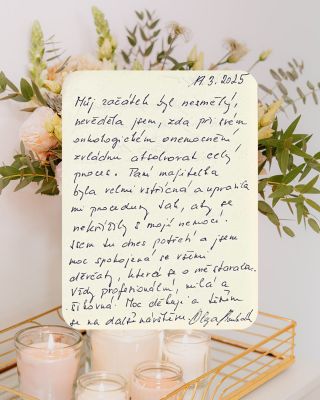 19.3.2025
Můj začátek byl nesmělý,
nevěděla jsem, zda při svém
onkologickém onemocnění
zvládnu absolvovat celý
proces. Paní majitelka
byla velmi vstřícná a upravila
mi procedury tak, aby se
nekřížily s mojí nemocí.
Jsem tu dnes potřetí a jsem
moc spokojená se všemi
děvčaty, která se o mě starala.
Vždy profesionální, milá a
šikovná. Moc děkuji a těším
se na další návštěvu. Olga